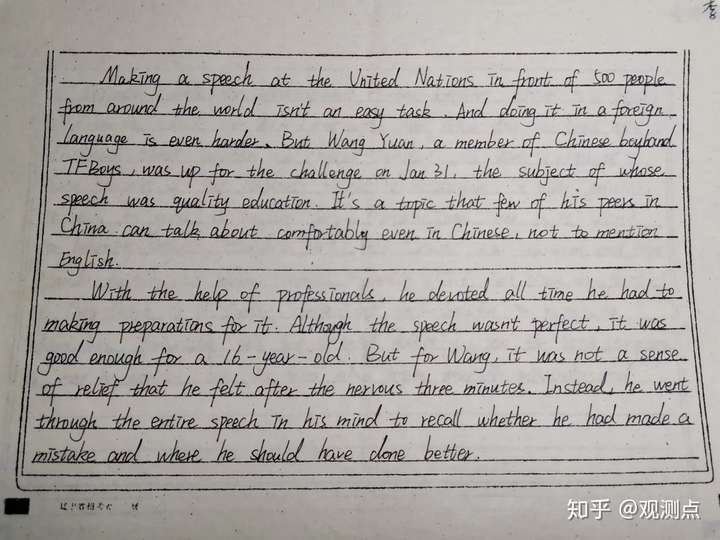 李
Making a speech at the United Nations in front of 500 people
from around the world isn't an easy task. And doing it in a foreign
language is even harder. But Wang Yuan, a member of Chinese boyband
TFBoys, was up for the challenge on Jan 31, the subject of whose
speech was quality education. It's a topic that few of his peers in
China can talk about comfortably even in Chinese, not to mention
English.
With the help of professionals, he devoted all time he had to
making preparations for it. Although the speech wasn't perfect, it was
good enough for a 16-year-old. But for Wang, it was not a sense
of relief that he felt after the nervous three minutes. Instead, he went
through the entire speech in his mind to recall whether he had made a
mistake and where he should have done better.
知乎 @观测点